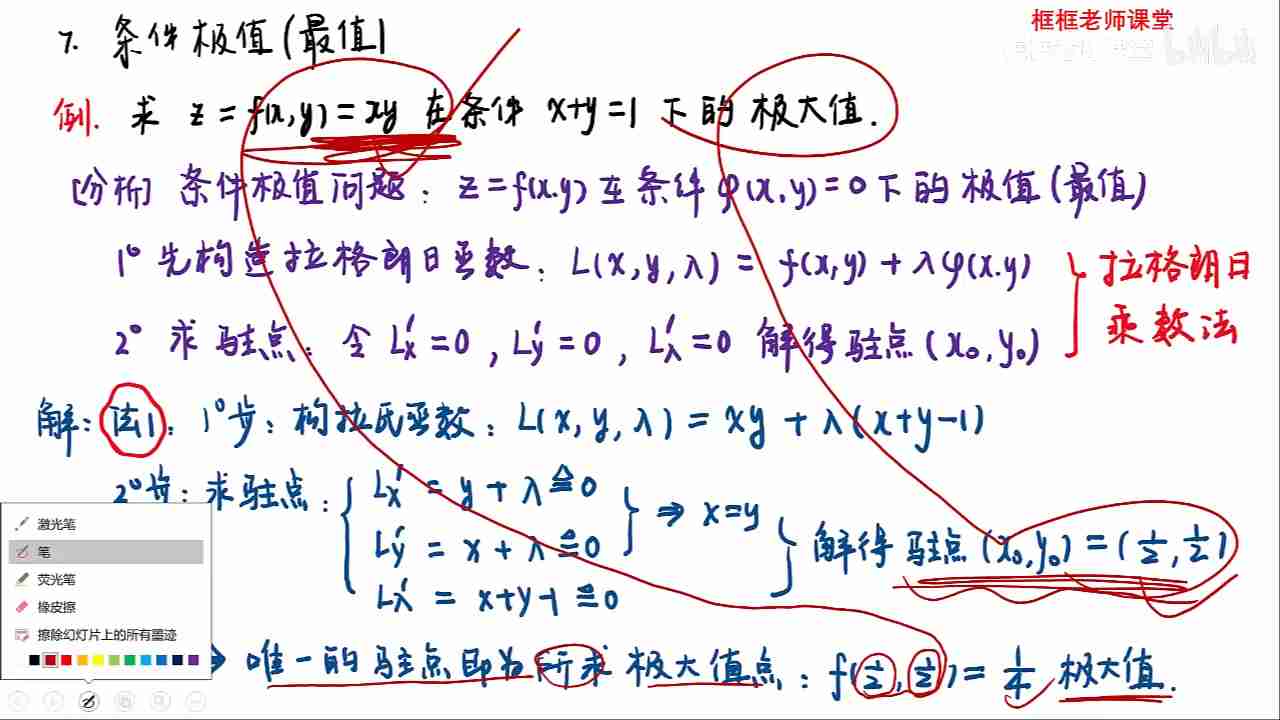 框框老师课堂
7. 条件极值(最值)
例. 求 z = f(x,y) = xy 在条件 x+y=1 下的 极大值.
[分析] 条件极值问题: z=f(x.y) 在条件 φ(x,y)=0 下的极值(最值)
1° 先构造拉格朗日函数: L(x,y,λ) = f(x,y) + λφ(x.y)
2° 求驻点: 令 Lx′=0, Ly′=0, Lλ′=0 解得驻点(x₀,y₀)
拉格朗日
乘数法
解: 法1: 1°步: 构拉氏函数: L(x,y,λ) = xy + λ(x+y-1)
2°步: 求驻点:
Lx′ = y + λ ≜ 0
Ly′ = x + λ ≜ 0
Lλ′ = x+y-1 ≜ 0
⇒ x=y
解得 驻点 (x₀,y₀) = (1/2, 1/2)
唯一的驻点即为所求极大值点: f(1/2, 1/2) = 1/4 极大值.
激光笔
笔
荧光笔
橡皮擦
擦除幻灯片上的所有墨迹